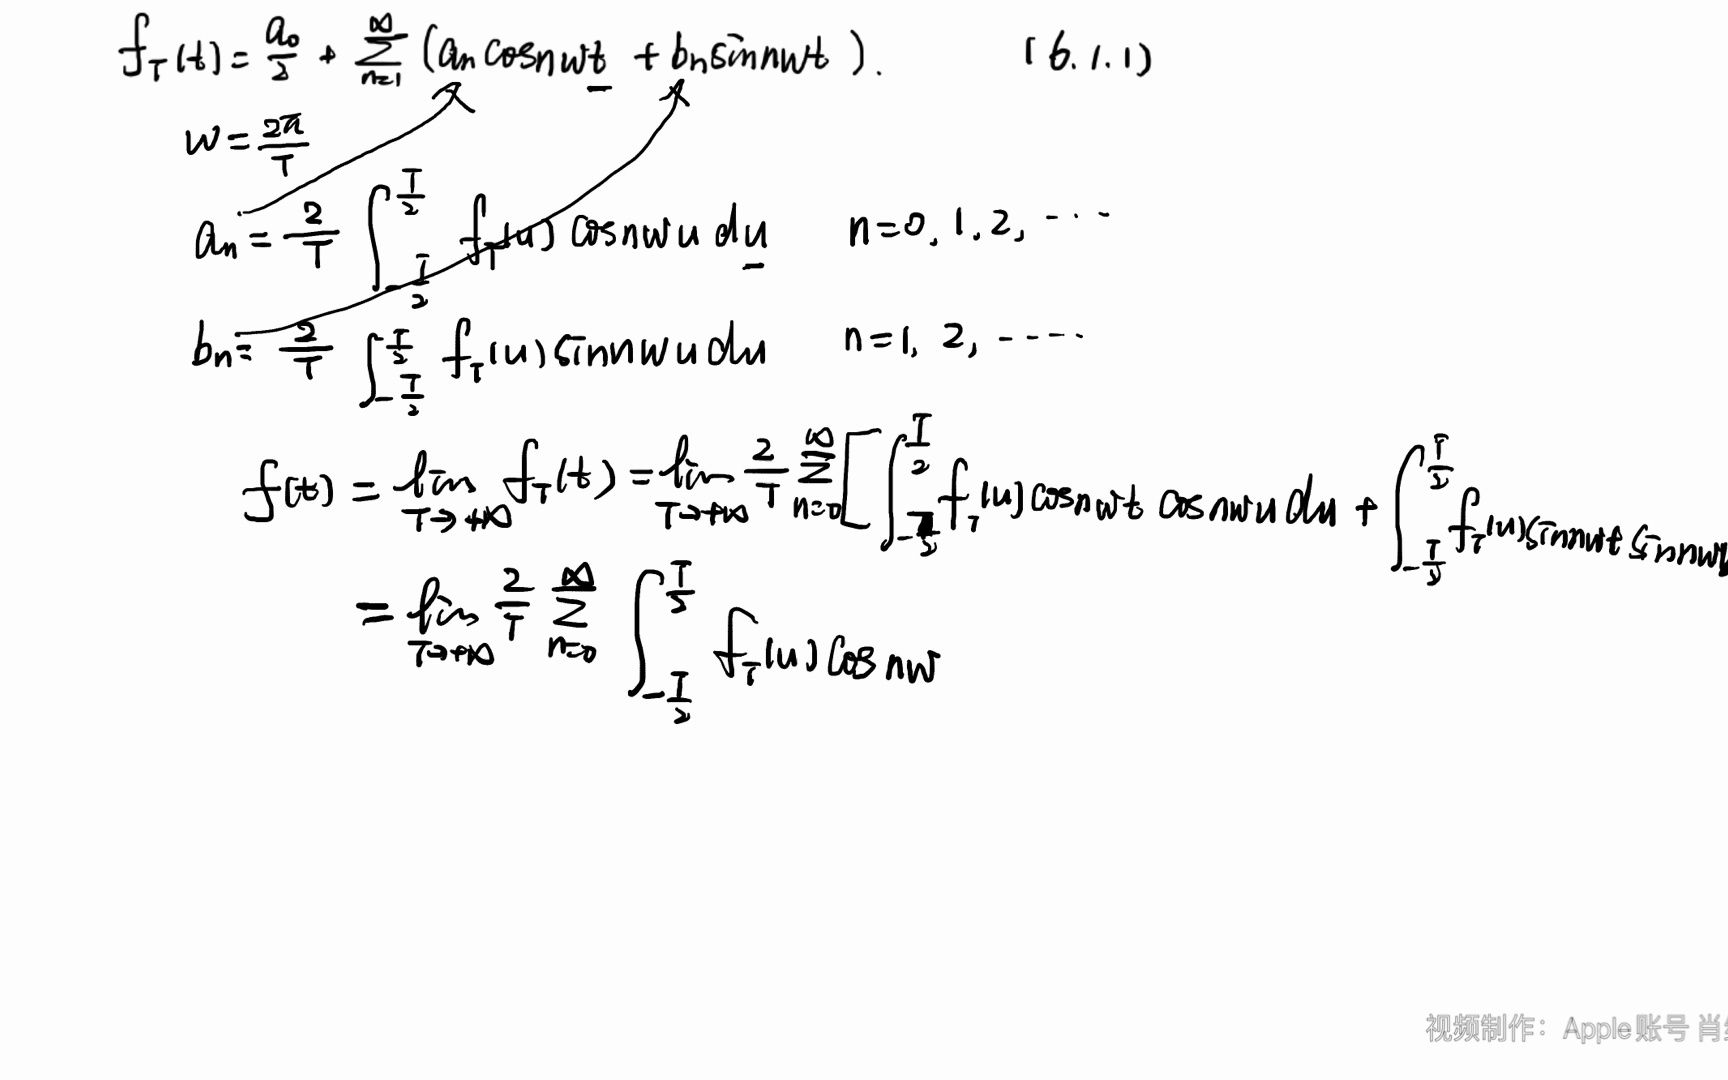 f_T(t) = a₀/2 + ∑_{n=1}^{∞} (aₙ cosnwt + bₙ sinnwt). (6.1.1)
w = 2π/T
aₙ = 2/T ∫_{-T/2}^{T/2} f_T(u) cosnwu du n=0, 1, 2, ⋯
bₙ = 2/T ∫_{-T/2}^{T/2} f_T(u) sinnwu du n=1, 2, ⋯
f(t) = lim_{T→+∞} f_T(t) = lim_{T→+∞} 2/T ∑_{n=0}^{∞} [ ∫_{-T/2}^{T/2} f_T(u) cosnwt cosnwu du + ∫_{-T/2}^{T/2} f_T(u) sinnwt sinnw
= lim_{T→+∞} 2/T ∑_{n=0}^{∞} ∫_{-T/2}^{T/2} f_T(u) cos nw
视频制作：Apple账号 肖